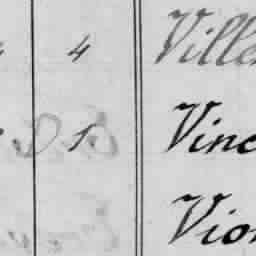 4 Ville
1 Vinc
Vion